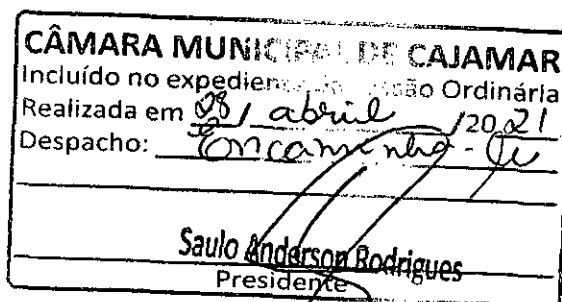 CÂMARA MUNICIPAL DE CAJAMAR
Incluído no expediente Sessão Ordinária
Realizada em 08/ abril /20 21
Despacho: Encaminha-se
Saulo Anderson Rodrigues
Presidente